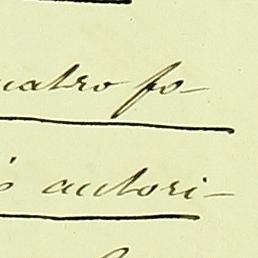 uatro fo-
é autori-